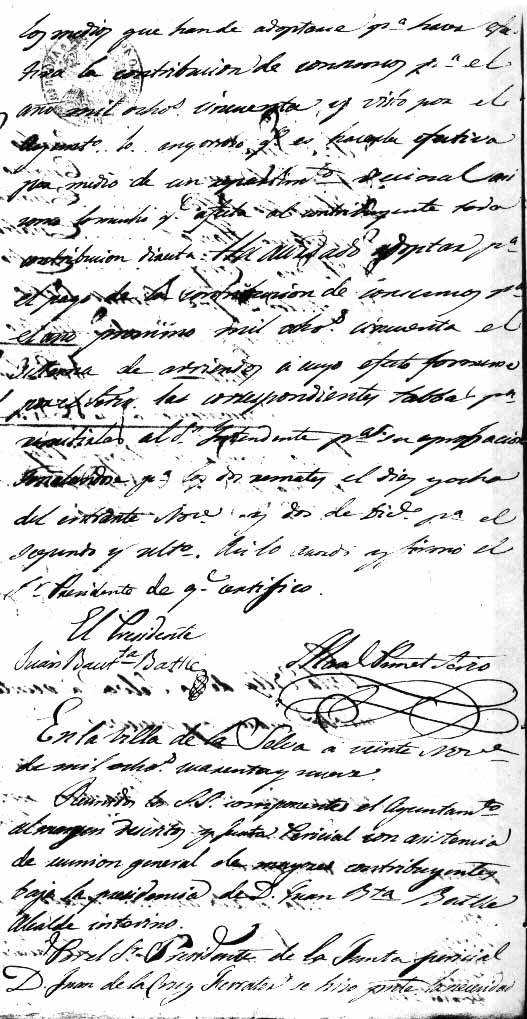 los medios que han de adoptarse pª hacer efec
tiva la contribucion de consumos pª el
año mil ochoˢ cincuenta y visto por el
Ayuntᵒ lo qᵉ es hacerla efectiva
por medio de un repartimᵗᵒ vecinal asi
como lo mucho qᵉ afecta al contribuyente toda
contribucion directa. Ha acordado adoptar pª
el pago de la contribucion de consumos pª
el año procsimo mil ochoˢ cincuenta el
sistema de arriendos a cuyo efecto formense
por el Sʳⁱᵒ las correspondientes tablas pª
remitirlas al Sʳ Intendente pª su aprobacion
señalandose pª los dos remates el diez y ocho
del entrante Novᵉ y dos de Dicᵉ pª el
segundo y ultᵒ. Asi lo acordó y firmó el
Sʳ Presidente de qᵉ certifico.
El Presidente
Juan Bautᵗᵃ Batlle
En la Villa de la Selva a veinte Novᵉ
de mil ochoˢ cuarenta y nueve.
Reunidos los SSʳˢ componentes el Ayuntamᵗᵒ
al margen descritos y Junta Pericial con asistencia
de reunion general de mayores contribuyentes
bajo la presidencia de D. Juan Bta Batlle
Alcalde interino.
Por el Sʳ Presidente de la Junta pericial
D. Juan de la Cruz se hizo pnte la necesidad